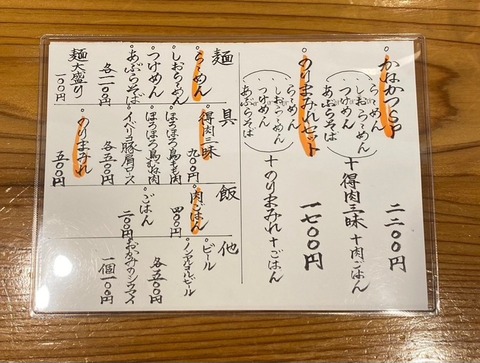 。かねかつSP 二二〇〇円
らーめん
しおらーめん
つけめん
あぶらそば
十得肉三昧十肉ごはん
。のりまみれセット 一七〇〇円
らーめん
しおらーめん
つけめん
あぶらそば
十のりまみれ十ごはん
麺
。らーめん
。しおらーめん
。つけめん
。あぶらそば
麺大盛り
一〇〇円
具
。得肉三昧
九〇〇円
。ほろほろ鳥もも肉
。ほろほろ鳥むね肉
。イベリコ豚肩ロース
各五〇〇円
。のりまみれ
五〇〇円
飯
。肉ごはん
四〇〇円
。ごはん
二〇〇円
他
。ビール
。ノンアルコールビール
各五〇〇円
。おかみのシウマイ